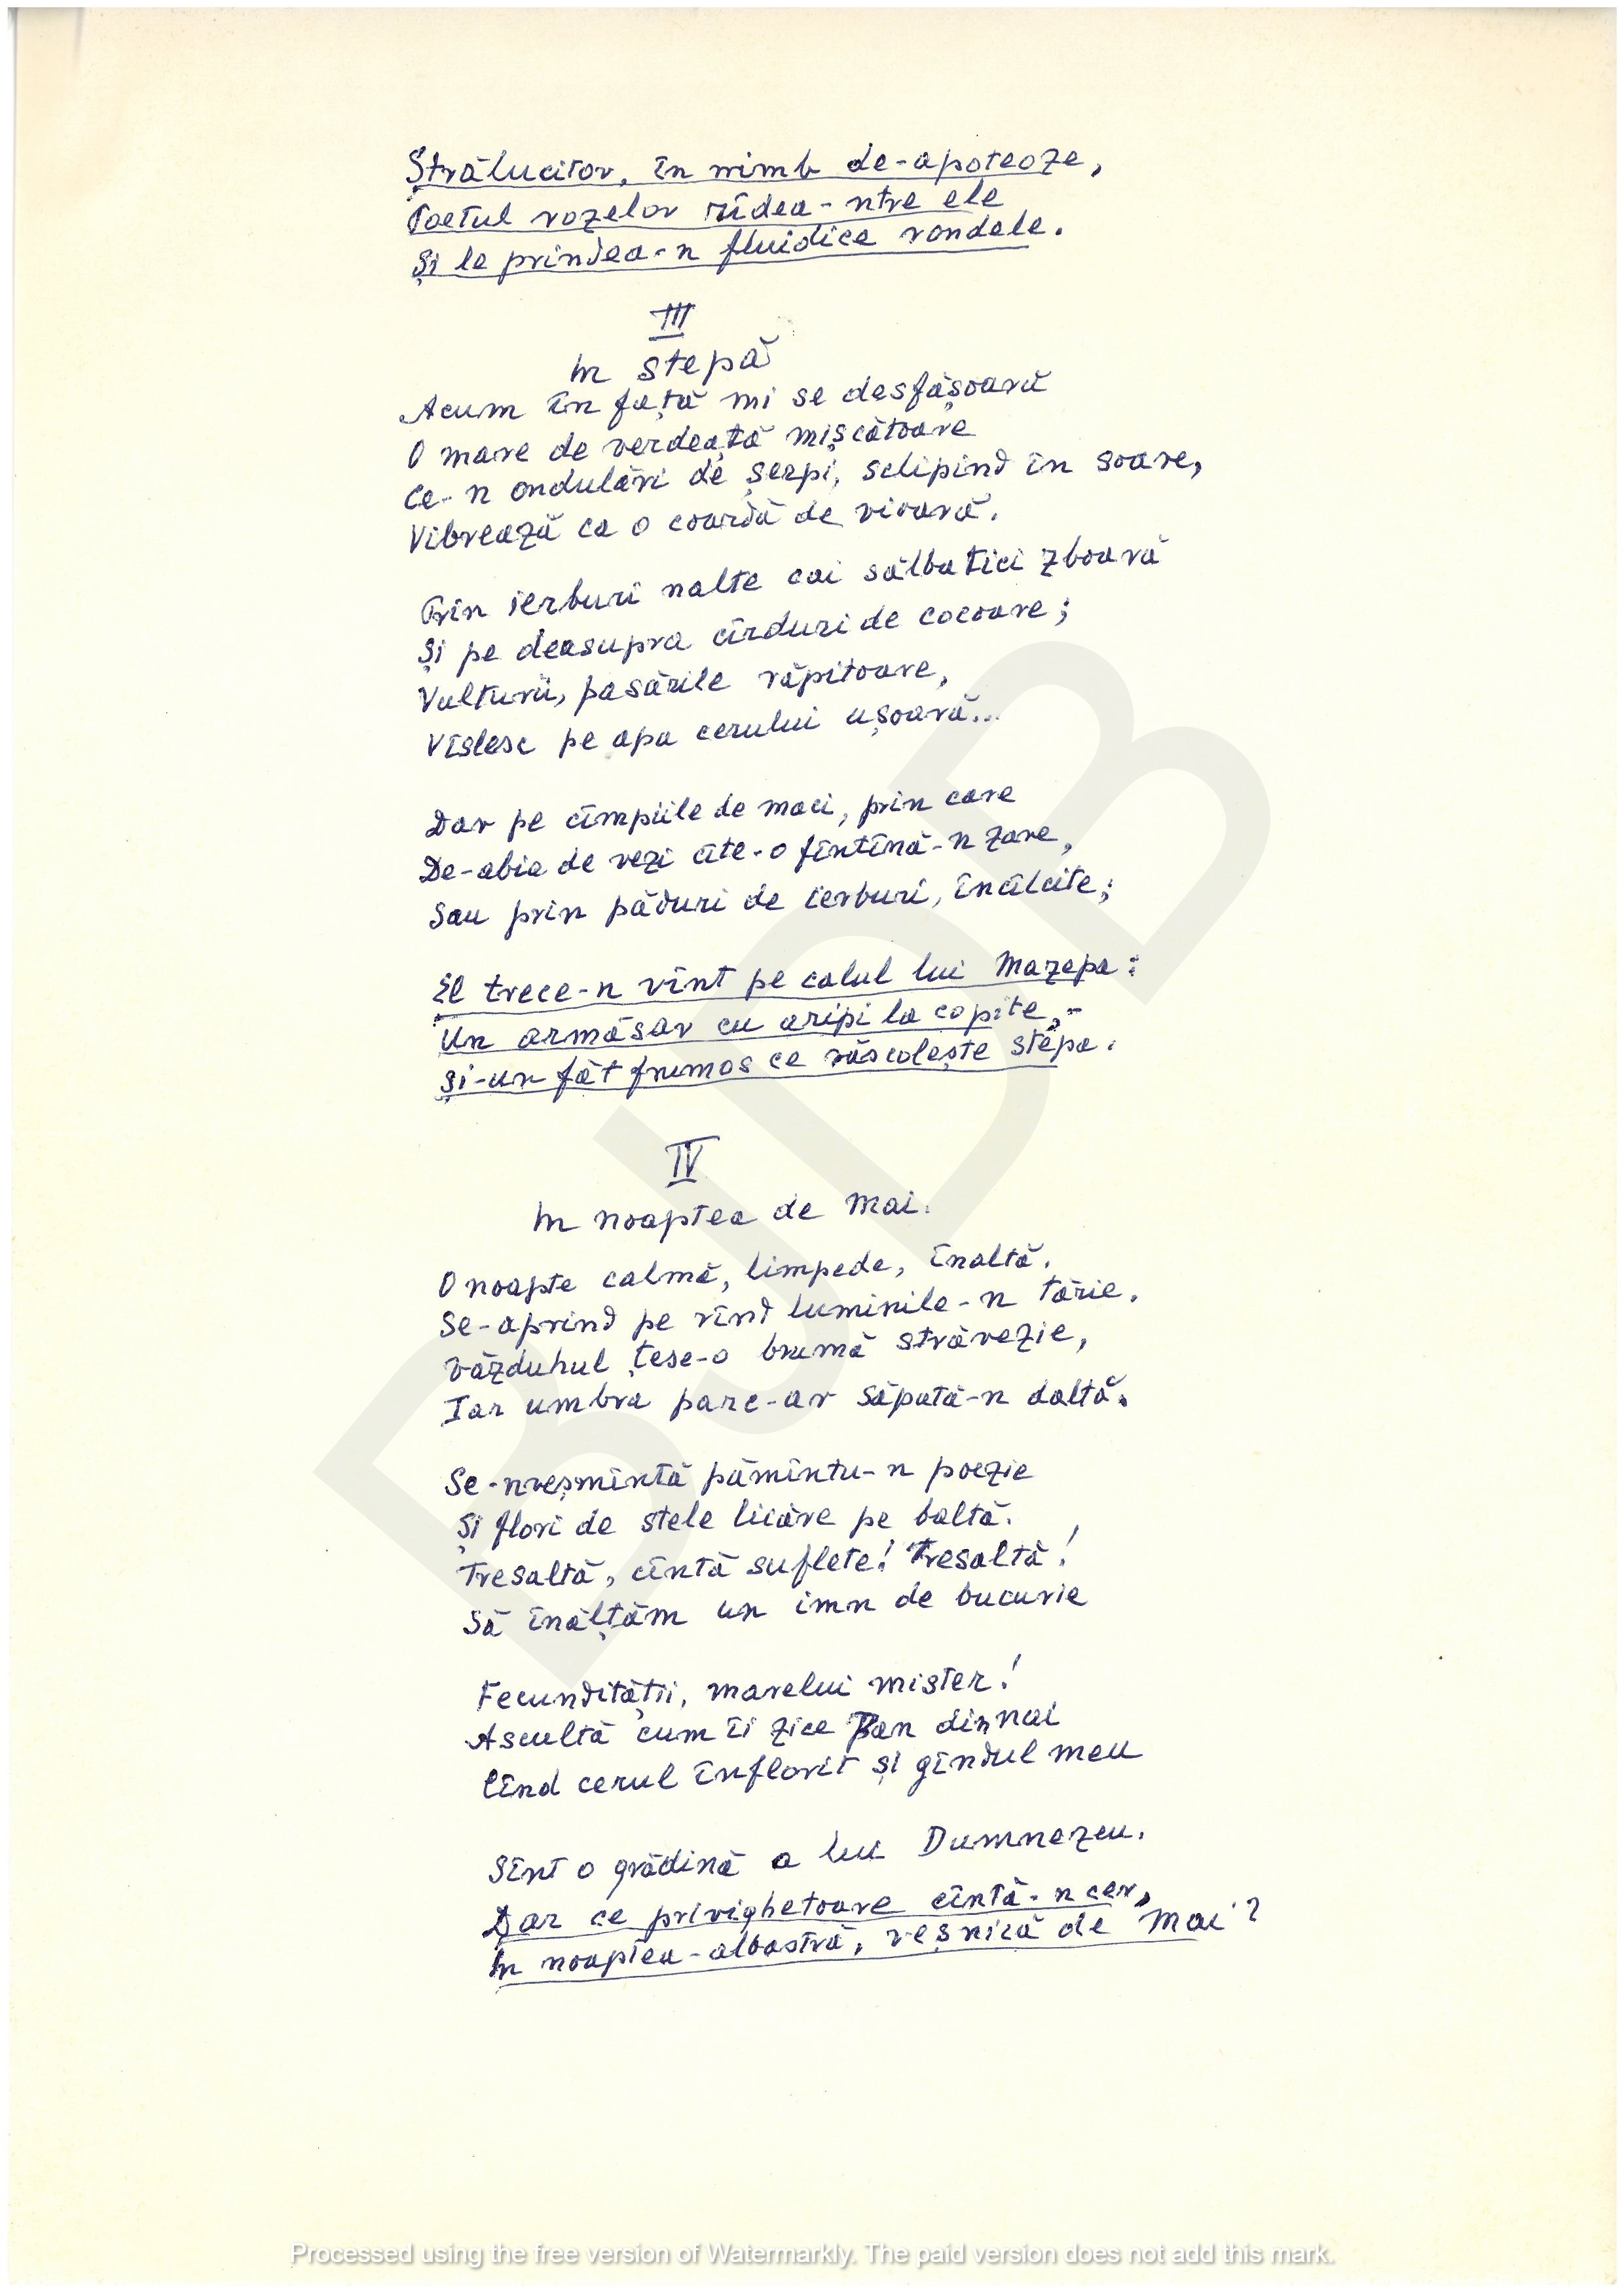 Strălucitor, în nimb de-apoteoze,
Poetul rozelor rîdea-ntre ele
Și le prindea-n fluidice rondele.
III
In stepă
Acum în față mi se desfășoară
O mare de verdeață mișcătoare
Ce-n ondulări de șerpi, sclipind în soare,
Vibrează ca o coardă de vioară.
Prin ierburi nalte cai sălbatici zboară
Și pe deasupra cîrduri de cocoare;
Vulturii, pasările răpitoare,
Vîslesc pe apa cerului ușoară...
Dar pe cîmpiile de maci, prin care
De-abia de vezi cîte-o fîntînă-n zare,
Sau prin păduri de ierburi, încîlcite;
El trece-n vînt pe calul lui Mazepa:
Un armăsar cu aripi la copite,-
Și-un făt frumos ce răscolește stepa.
IV
In noaptea de Mai.
O noapte calmă, limpede, înaltă.
Se-aprind pe rînd luminile-n tărie.
Văzduhul țese-o brumă străvezie,
Iar umbra parc-ar săpată-n daltă.
Se-nveșmîntă pămîntu-n poezie
Și flori de stele licăre pe baltă.
Tresaltă, cîntă suflete! Tresaltă!
Să înălțăm un imn de bucurie
Fecundității, marelui mister!
Ascultă cum îi zice Pan din nai
Cînd cerul înflorit și gîndul meu
Sînt o grădină a lui Dumnezeu.
Dar ce privighetoare cîntă-n cer,
In noaptea-albastră, veșnică de Mai?
BJDB
Processed using the free version of Watermarkly. The paid version does not add this mark.